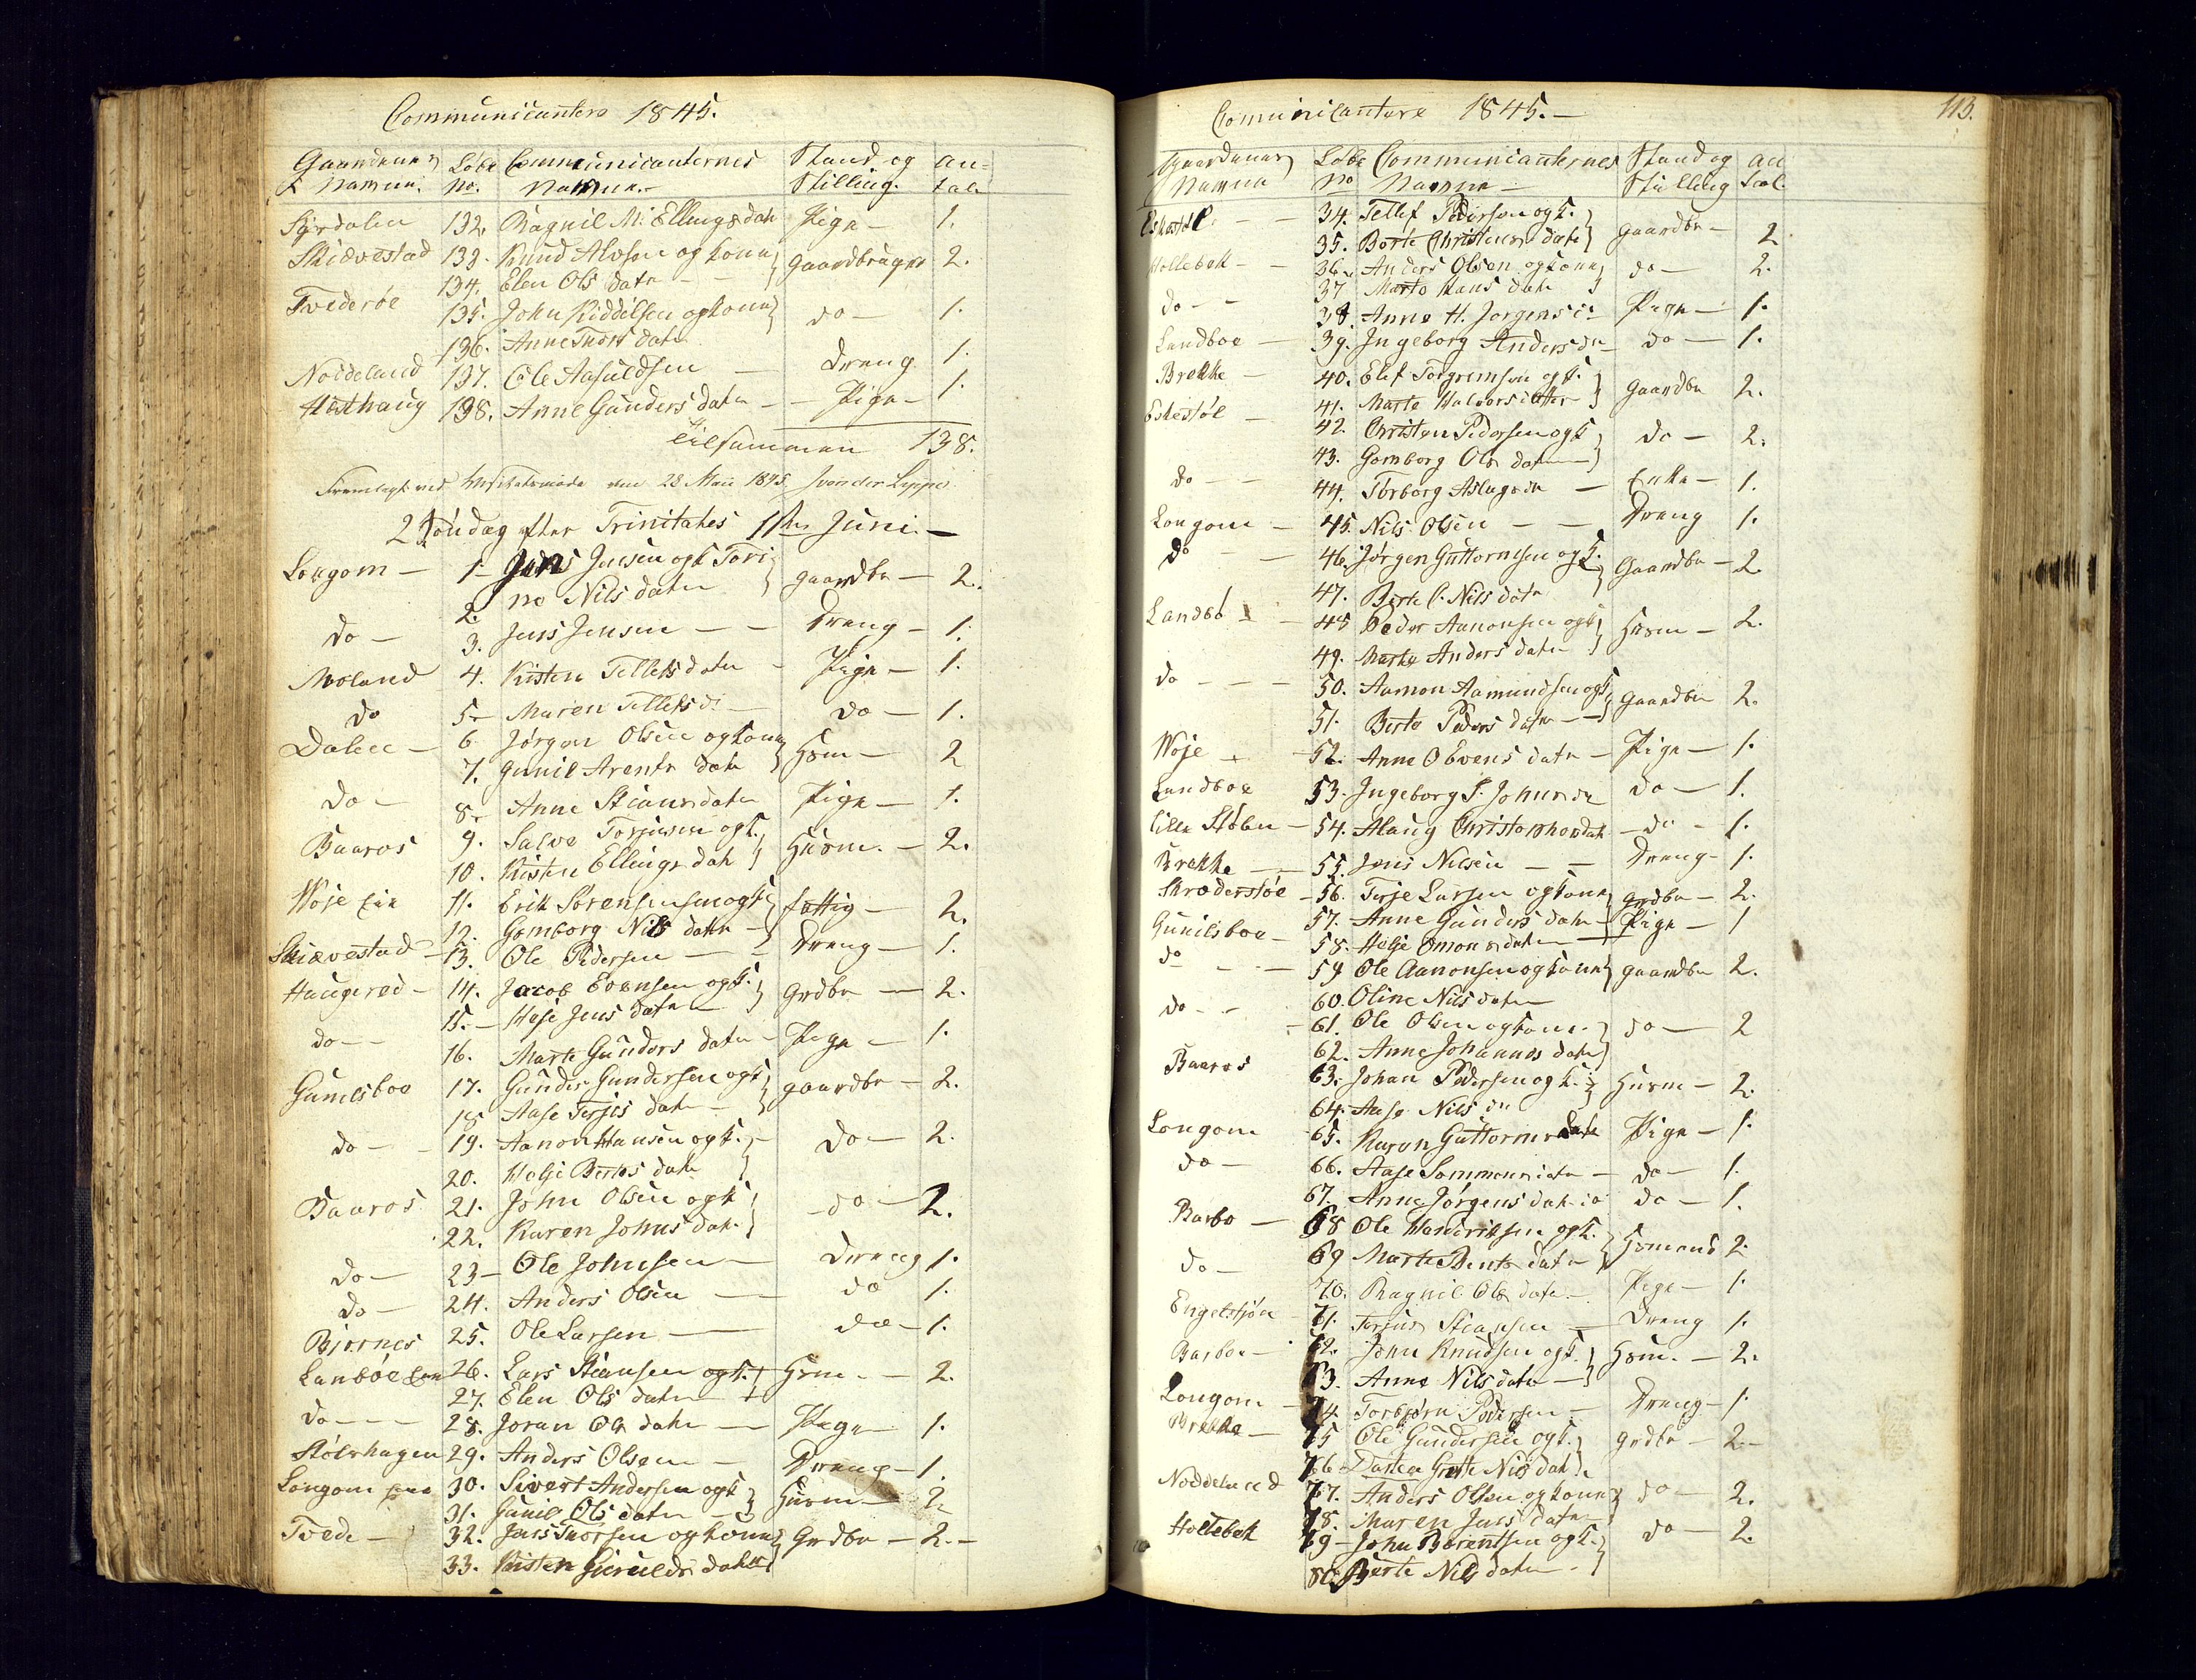 Communicantere 1845.
Gaardenes Løbe Communicanternes Stand og An-
Navnene. No. Navne. Stilling. tal.
132. Ragnil M. Ellingsdatr Pige 1.
Skiævestad 133. Knud Alvsen og kone gaardbruger 2.
134. Elen Ols datr
Tvederøe 135. John Kiddelsen og kone do 1.
136. Anne datr
Noddeland 137. Ole Aasuldsen dreng 1.
Hesthaug 138. Anne Gunders datr Pige 1.
tilsammen 138.
Fremlagt ved 28 Mai 1845
2 Søndag efter Trinitatis 1ste Juni
Longom 1 Jens Jensen og K Tori gaardbr 2.
2. ne Nils datr
do 3. Jens Jensen Dreng 1.
Moland 4. Kisten Tellefs datr Pige 1.
do 5 Maren Tellefs d do 1.
Dalen 6. Jørgen Olsen og kone Hsm 2
7. Gunil Arents datr
do 8. Anne Stians datr Pige 1.
Baaros 9. Salve Torjusen og K. Husm. 2.
10. Kisten Ellings datr
Woje Eie 11. Erik Sørensen og K fattig 2.
12. Gomborg Nils datr
Skiævestad 13. Ole Pedersen Dreng 1.
Haugerød 14. Jacob Evensen og K. Grdbr 2.
15. Helje Jens datr
do 16. Marte Gunders datr Pige 1.
Gunilsboe 17. Gunder Gundersen og K gaardbr 2.
18 Aase Terjes datr
do 19. Aanon Hansen og K. do 2.
20. Helje Bertes datr
Baaros 21. John Olsen og K do 2.
22. Karen Johns datr
do 23 Ole Johnsen Dreng 1.
do 24. Anders Olsen do 1.
Biørnes 25. Ole Larsen do 1.
Lanbøe Eie 26. Lars Stiansen og K. Hsm. 2.
27. Elen Ols datr
do 28. Joran Ols datr Pige 1.
Stølshagen 29. Anders Olsen Dreng 1.
Longom Eie 30. Sivert Andersen og K Husm 2
31. Gunil Ols datr
Tvede 32. Jens Thorsen og kone Grdbr 2.
33. Kisten Giruldr datr
Comunicantere 1845. 113.
Gaardenes Løbe Communicanternes Stand og An
Navne No Navne Stilling tal.
34. Tellef Pedersen og K. gaardbr 2
35. Børte Christens datr
Hollebek 36. Anders Olsen og kone do 2.
37 Marte Hans datr
do 38. Anne H. Jorgens d Pige 1.
Landboe 39. Ingeborg Anders dr do 1.
Brekke 40. Elef Torgremsen og K. gaardbr 2.
41. Marte Halvors datter
Eskestøl 42. Christen Pedersen og K do 2.
43. Gomborg Ols datr
do 44. Torborg Aslags dr Enke 1.
Longom 45. Nils Olsen Dreng 1.
do 46. Jørgen Guttormsen og K. gaardbr 2.
47. Berte C. Nils datr
Landbø 48 Peder Aanonsen og K Husm 2.
49. Marte Anders datr
do 50. Aamon Aamundsen og K gaardbr 2.
51. Berte Peders datr
Woje 52. Anne O Evens datr Pige 1.
Landboe 53. Ingeborg S. Johns dr do 1.
Lille Støle 54. Alaug Christophors datr do 1.
Brekke 55. Jens Nilsen Dreng 1.
Skræderstøe 56. Terje Larsen og kone grdbr 2.
Gunilsboe 57. Anne Gunders datr Pige 1
58. Helje Omons datr
do 59 Ole Aanonsen og kone gaardbr 2.
60. Oline Nils datr
do 61. Ole Olsen og kone do 2
62. Anne Johannes datr
Baaros 63. Johan Pedersen og K. Husm 2.
64. Aase Nils dr
Longom 65. Karen Guttorms datr Pige 1.
do 66. Aase datr do 1.
67. Anne Jørgens datr do 1.
Barbo 68 Ole Hendriksen og K. Hsmand 2.
do 69 Marte Bents datr
70. Ragnil Ols datr Pige 1.
71. Torjus Stiansen Dreng 1.
Barboe 72. John Knudsen og K. Hsm. 2.
73. Anne Nils datr
Longom 74. Torbjørn Pedersen Dreng 1.
Brekke 75 Ole Gundersen og K. grdbr 2.
76 Dartea Grete Nils datr
Noddeland 77. Anders Olsen og kone do 2.
78. Maren Jens datr
Hollebek 79 John Berentsen og K. do 2.
80. Berte Nils datr